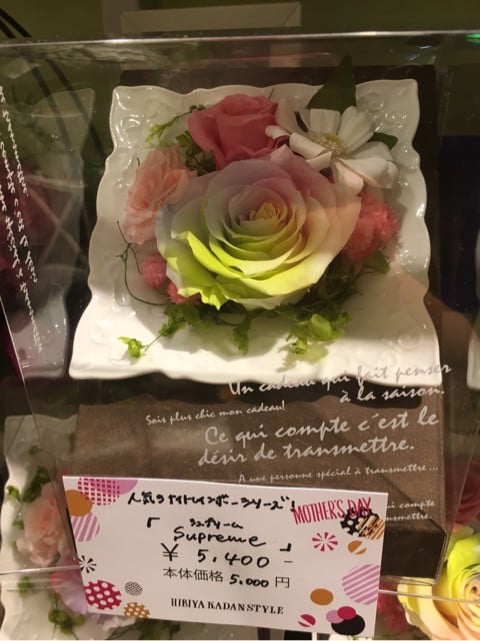 Un cadeau qui fait penser
à la saison.
Sois plus chic mon cadeau!
Ce qui compte c'est le
désir de transmettre.
A une personne spécial à transmettre...
qui compte
transmettre.
人気のナイトレインボーシリーズ!
MOTHER'S DAY
「シュプリーム
Supreme」
¥ 5,400-
本体価格 5,000 円
HIBIYA KADAN STYLE